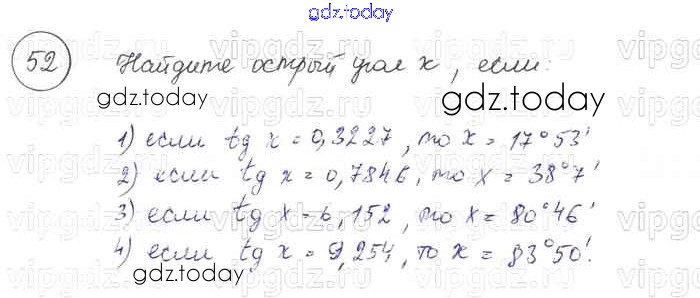 gdz.today
52 Найдите острый угол x, если:
gdz.today gdz.today
1) если tg x = 0,3227, то x = 17°53'
2) если tg x = 0,7846, то x = 38°7'
3) если tg x = 6,152, то x = 80°46'
4) если tg x = 9,254, то x = 83°50'.
gdz.today